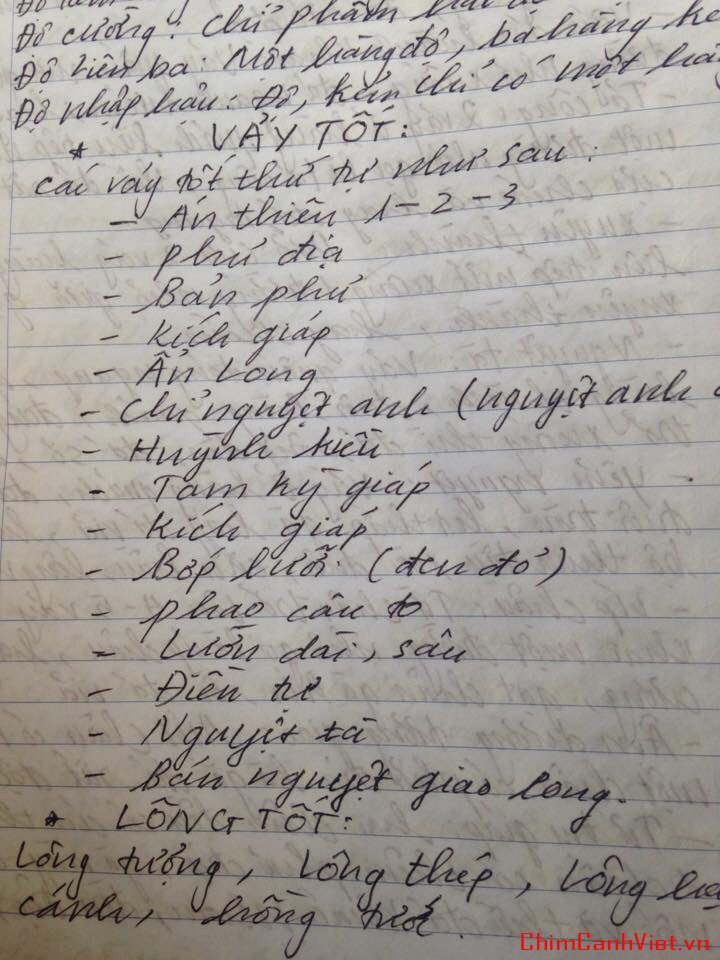 Độ cường: Chỉ phẩm
Độ liên ba: Một hàng độ, ba hàng kẽ
Độ nhập hậu: Độ, kẽm chỉ có một hà
* VẢY TỐT:
cái vảy tốt thứ tự như sau:
- Án thiên 1-2-3
- phủ địa
- Bản phủ
- Kích giáp
- Ẩn Long
- Chỉ nguyệt anh (nguyệt anh
- Huỳnh kiều
- Tam kỳ giáp
- Kích giáp
- Bớp lưỡi (đen đỏ)
- phao câu to
- Lườn dài, sâu
- Điền tự
- Nguyệt tà
- Bán nguyệt giao long.
* LÔNG TỐT:
Lông tượng, Lông thép, Lông
cánh, hồng
ChimCanhViet.vn